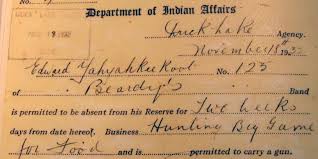 Department of Indian Affairs
Duck Lake Agency.
November 18th 1932
Edward Yahyahkeekoot No. 123
of Beardy's Band
is permitted to be absent from his Reserve for Two weeks
days from date hereof. Business Hunting Big Game
for Food and is permitted to carry a gun.